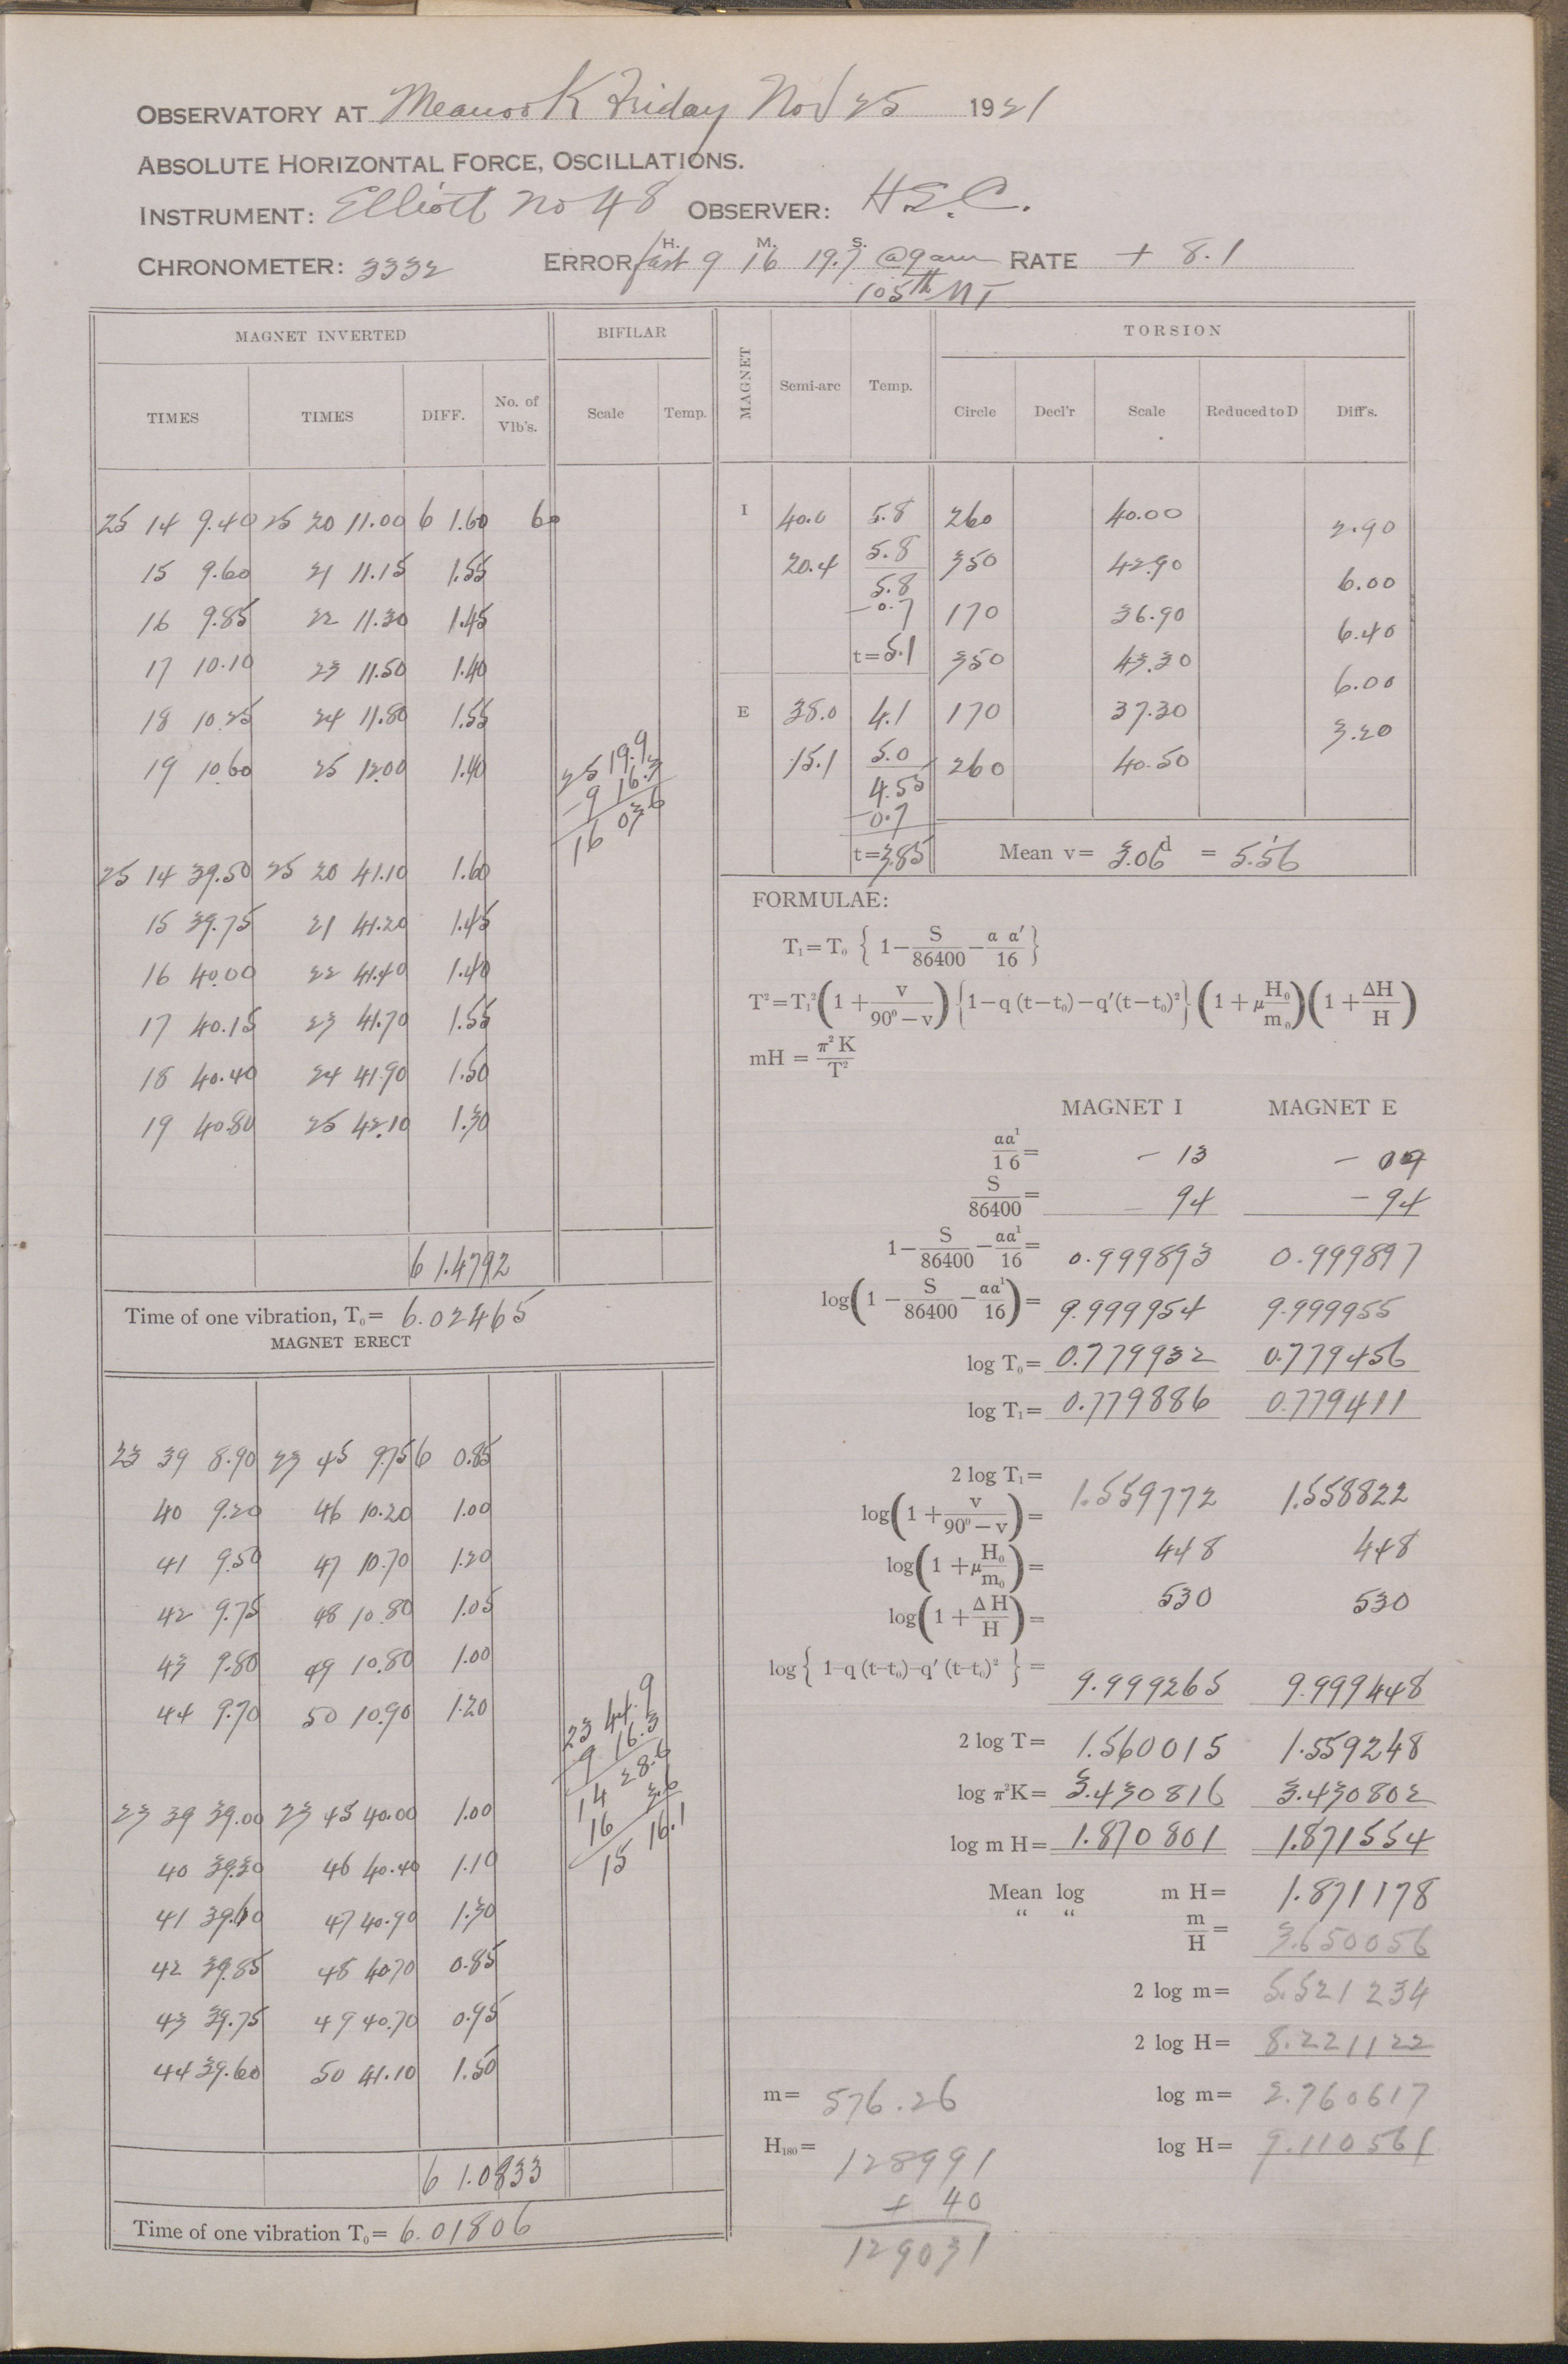 OBSERVATORY AT Meanook Friday Nov 25 1921
ABSOLUTE HORIZONTAL FORCE, OSCILLATIONS.
INSTRUMENT: Elliott No 48 OBSERVER: H.E.C.
CHRONOMETER: 3332 ERROR fast H. 9 M. 16 S. 19.7 @ 9 am RATE + 8.1
105th MT
MAGNET INVERTED BIFILAR
TIMES TIMES DIFF. No. of Vib's. Scale Temp.
25 14 9.40 25 20 11.00 6 1.60 60
15 9.60 21 11.15 1.55
16 9.85 22 11.30 1.45
17 10.10 23 11.50 1.40
18 10.25 24 11.80 1.55
19 10.60 25 12.00 1.40
25 19.9
-9 16.3
16 03.6
25 14 39.50 25 20 41.10 1.60
15 39.75 21 41.20 1.45
16 40.00 22 41.40 1.40
17 40.15 23 41.70 1.55
18 40.40 24 41.90 1.50
19 40.80 25 42.10 1.30
6 1.4792
Time of one vibration, T₀= 6.02465
MAGNET ERECT
23 39 8.90 23 45 9.75 6 0.85
40 9.20 46 10.20 1.00
41 9.50 47 10.70 1.20
42 9.75 48 10.80 1.05
43 9.80 49 10.80 1.00
44 9.70 50 10.90 1.20
23 44.9
9 16.3
14 28.6
16 3.6
15 16.1
23 39 39.00 23 45 40.00 1.00
40 39.30 46 40.40 1.10
41 39.60 47 40.90 1.30
42 39.85 48 40.70 0.85
43 39.75 49 40.70 0.95
44 39.60 50 41.10 1.50
6 1.0833
Time of one vibration T₀= 6.01806
MAGNET Semi-arc Temp. TORSION
Circle Decl'r Scale Reduced to D Diff's.
I 40.0 5.8 260 40.00
2.90
20.4 5.8 350 42.90
5.8
6.00
-0.7 170 36.90
6.40
t=5.1 350 43.30
6.00
E 38.0 4.1 170 37.30
3.20
15.1 5.0 260 40.50
4.55
-0.7
t=3.85 Mean v= 3.06ᵈ = 5.'56
FORMULAE:
T₁=T₀ { 1−S/86400−a a'/16 }
T²=T₁²(1+v/90°−v){1−q (t−t₀)−q'(t−t₀)²}(1+μH₀/m₀)(1+ΔH/H)
mH = π²K/T²
MAGNET I MAGNET E
aa¹/16= − 13 − 09
S/86400= − 94 − 94
1−S/86400−aa¹/16= 0.999893 0.999897
log(1−S/86400−aa¹/16)= 9.999954 9.999955
log T₀= 0.779932 0.779456
log T₁= 0.779886 0.779411
2 log T₁= 1.559772 1.558822
log(1+v/90°−v)= 448 448
log(1+μH₀/m₀)= 530 530
log(1+ΔH/H)=
log{ 1−q (t−t₀)−q' (t−t₀)² }= 9.999265 9.999448
2 log T= 1.560015 1.559248
log π²K= 3.430816 3.430802
log m H= 1.870801 1.871554
Mean log m H= 1.871178
“ “ m/H= 3.650056
2 log m= 5.521234
2 log H= 8.221122
m= 576.26 log m= 2.760617
H₁₈₀= 128991 log H= 9.110561
+ 40
129031